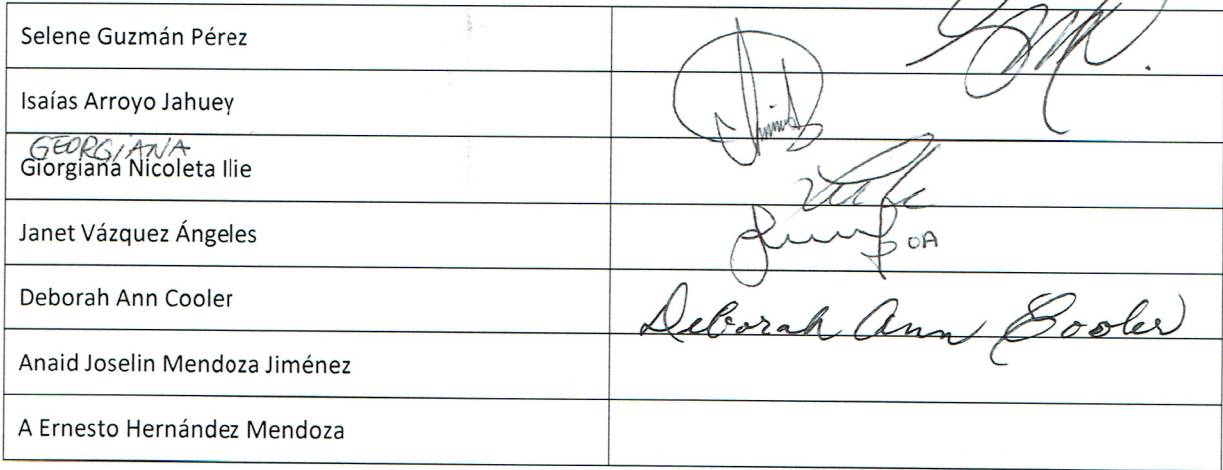 Selene Guzmán Pérez
Isaías Arroyo Jahuey
GEORGIANA
Giorgiana Nicoleta Ilie
Janet Vázquez Ángeles
OA
Deborah Ann Cooler
Deborah Ann Cooler
Anaid Joselin Mendoza Jiménez
A Ernesto Hernández Mendoza